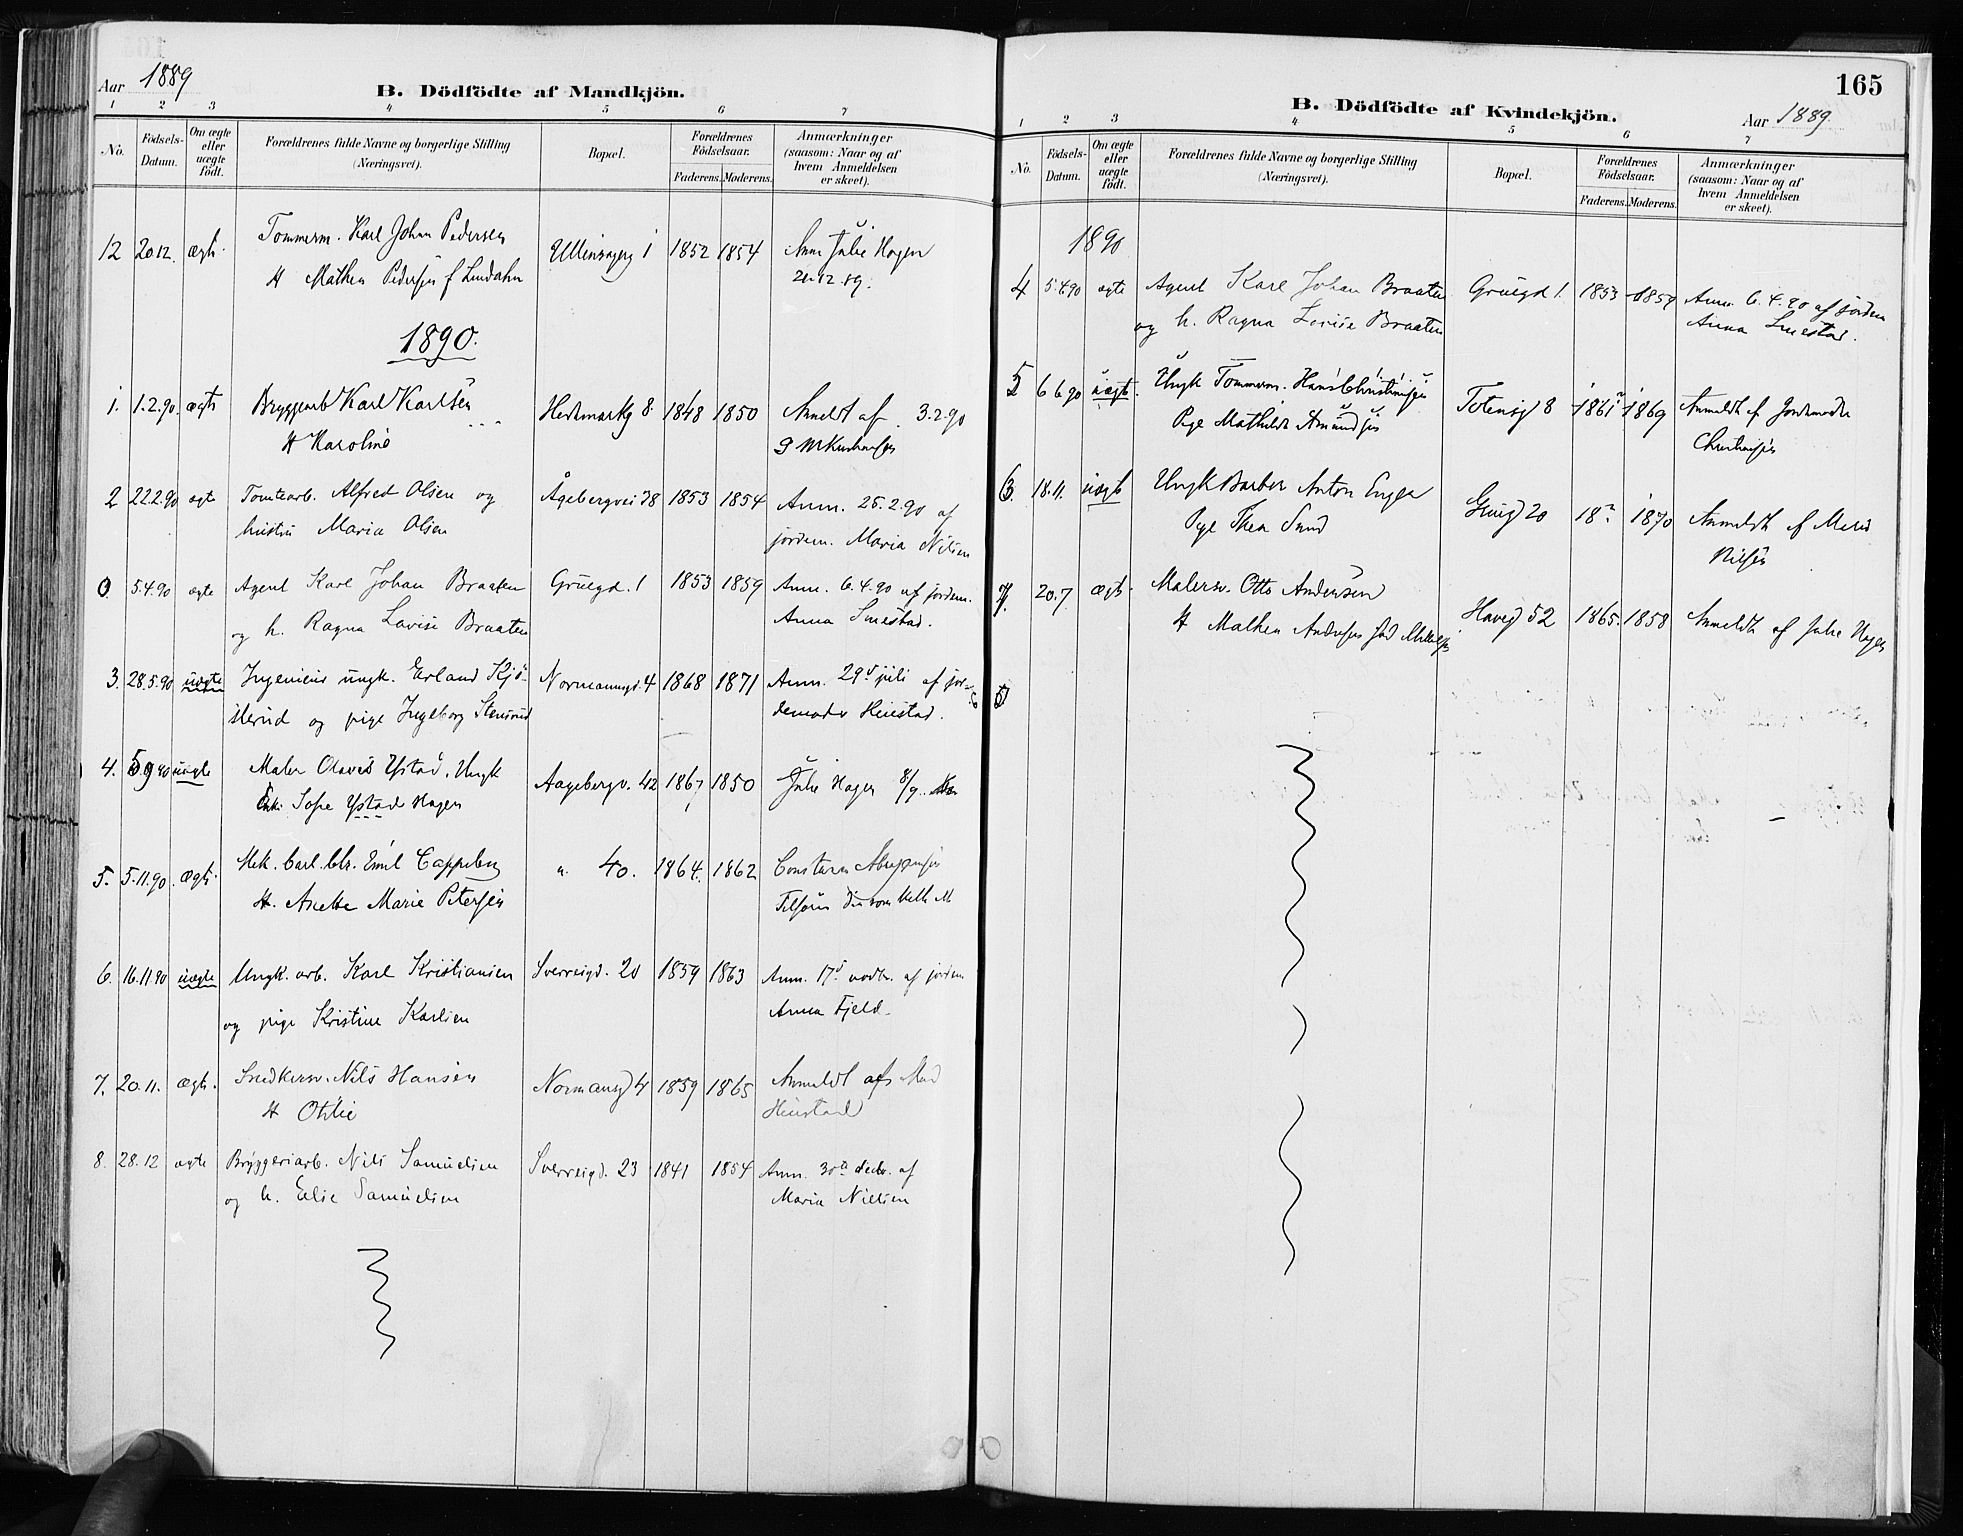 Aar 1889
B. Dödfödte af Mandkjön.
1 2 3 4 5 6 7
No. Födsels-Datum. Om ægte eller uægte födt. Forældrenes fulde Navne og borgerlige Stilling (Næringsvei). Bopæl. Forældrenes Födselsaar. Faderens. Moderens. Anmærkninger (saasom: Naar og af hvem Anmeldelsen er skeet).
12 20.12. ægte Tømmerm. Karl Johan Pedersen Ullensagg 1 1852 1854 Anm Julie Hagen
H Mathea Pedersen f
1890.
1. 1.2.90. ægte Bryggearb Karl Karlsen Hedemarkg 8. 1848 1850 Anmeldt af 3.2.90
H Karoline
2 22.2.90 ægte Tomtearb. Alfred Olsen og Ågebergvei 38 1853 1854 Anm. 25.2.90 af
hustru Maria Olsen jordem. Maria Nilsen
0. 5.4.90 ægte Agent Karl Johan Braaten Gruegd. 1 1853 1859 Anm. 6.4.90 af jordem.
og h. Ragna Lovise Braaten Anna Smestad.
3. 28.5.90 uægte Ingeniør ungk. Erland Kjö- Normannsgd. 4 1868 1871 Anm. 29d juli af jor-
sterud og pige Ingeborg Stensrud demoder
4. 5 9 90 uægte Maler Olaves Ystad, Ungk Aagebergv. 42 1867 1850 Julie Hagen 8/9
Enk. Sofie Ystad Hagen
5. 5.11.90. ægte Mek. Emil Cappelen " 40. 1864. 1862
H. Anette Marie Petersen
6. 16.11.90 uægte Ungk. arb. Karl Kristiansen Sverresgd. 20 1859 1863 Anm. 17d novbr. af jordem
og pige Kristine Karlsen Anna Fjeld.
7. 20.11. ægte Snedkersv. Nils Hansen Normansgd 4 1859 1865 Anmeldt af Mad
H Othilie
8. 28.12 ægte Bryggeriarb. Nils Samuelsen Sverresgd. 23 1841 1854 Anm. 30te decbr. af
og h. Elise Samuelsen Maria Nielsen
165
B. Dödfödte af Kvindekjön.
Aar 1889
1 2 3 4 5 6 7
No. Födsels-Datum. Om ægte eller uægte födt. Forældrenes fulde Navne og borgerlige Stilling (Næringsvei). Bopæl. Forældrenes Födselsaar. Faderens. Moderens. Anmærkninger (saasom: Naar og af hvem Anmeldelsen er skeet).
1890
4 5.4.90 ægte Agent Karl Johan Braaten Gruegd 1. 1853 1859 Anm. 6.4.90 af jordem
og h. Ragna Lovise Braaten Anna Smestad.
5 6 6 90 uægte. Ungk Tømmerm. Hans Christensen Totensgd 8 1861 1869 Anmeldt af Jordemoder
Pige Mathilde Amundsen Christensen
6. 18.11. uægte Ungk Barber Anton Enger Grueg 20 18? 1870 Anmeldt af Maria
Pige Thea Sund Nilsen
7. 20.7. ægte Malersv. Otto Andersen Haveg 52 1865. 1858 Anmeldt af Julie Hagen
H Mathea Andersen